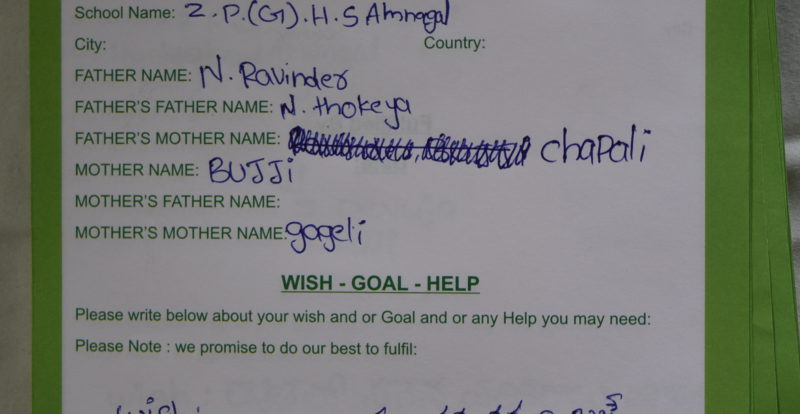 School Name: Z.P.(G).H.S Amnagal
City: Country:
FATHER NAME: N. Ravinder
FATHER'S FATHER NAME: N. thokeya
FATHER'S MOTHER NAME: chapali
MOTHER NAME: BUJJi
MOTHER'S FATHER NAME:
MOTHER'S MOTHER NAME: gogeli
WISH - GOAL - HELP
Please write below about your wish and or Goal and or any Help you may need:
Please Note : we promise to do our best to fulfil: